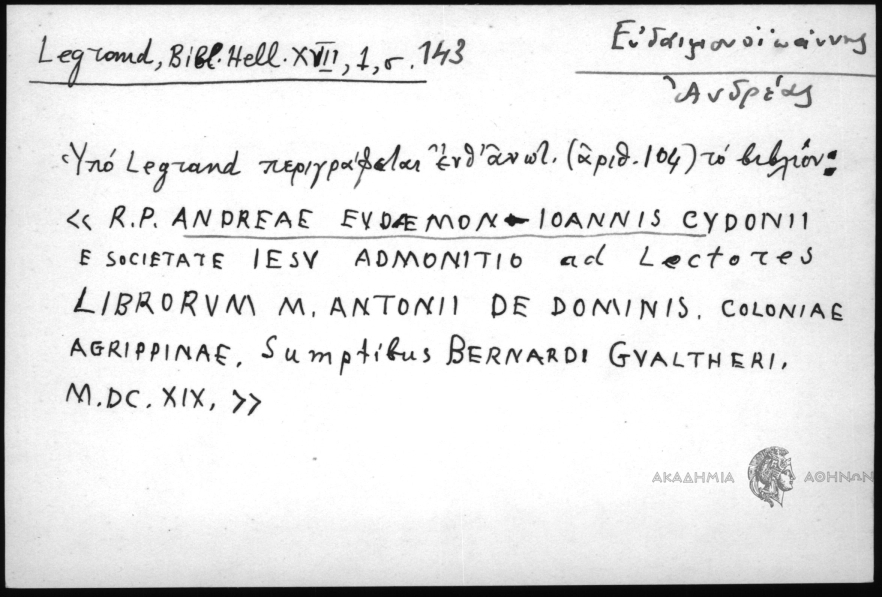 Legrand, Bibl. Hell. XVII, 1, σ. 143
Εὐδαιμονοϊωάννης
Ἀνδρέας
Ὑπό Legrand περιγράφεται ἐνθ' ἀνωτ. (ἀριθ. 104) τό βιβλίον:
« R.P. ANDREAE EVDÆMON - IOANNIS CYDONII
E SOCIETATE IESV ADMONITIO ad Lectores
LIBRORVM M. ANTONII DE DOMINIS. COLONIAE
AGRIPPINAE, Sumptibus BERNARDI GVALTHERI,
M.DC.XIX, »
ΑΚΑΔΗΜΙΑ ΑΘΗΝΩΝ